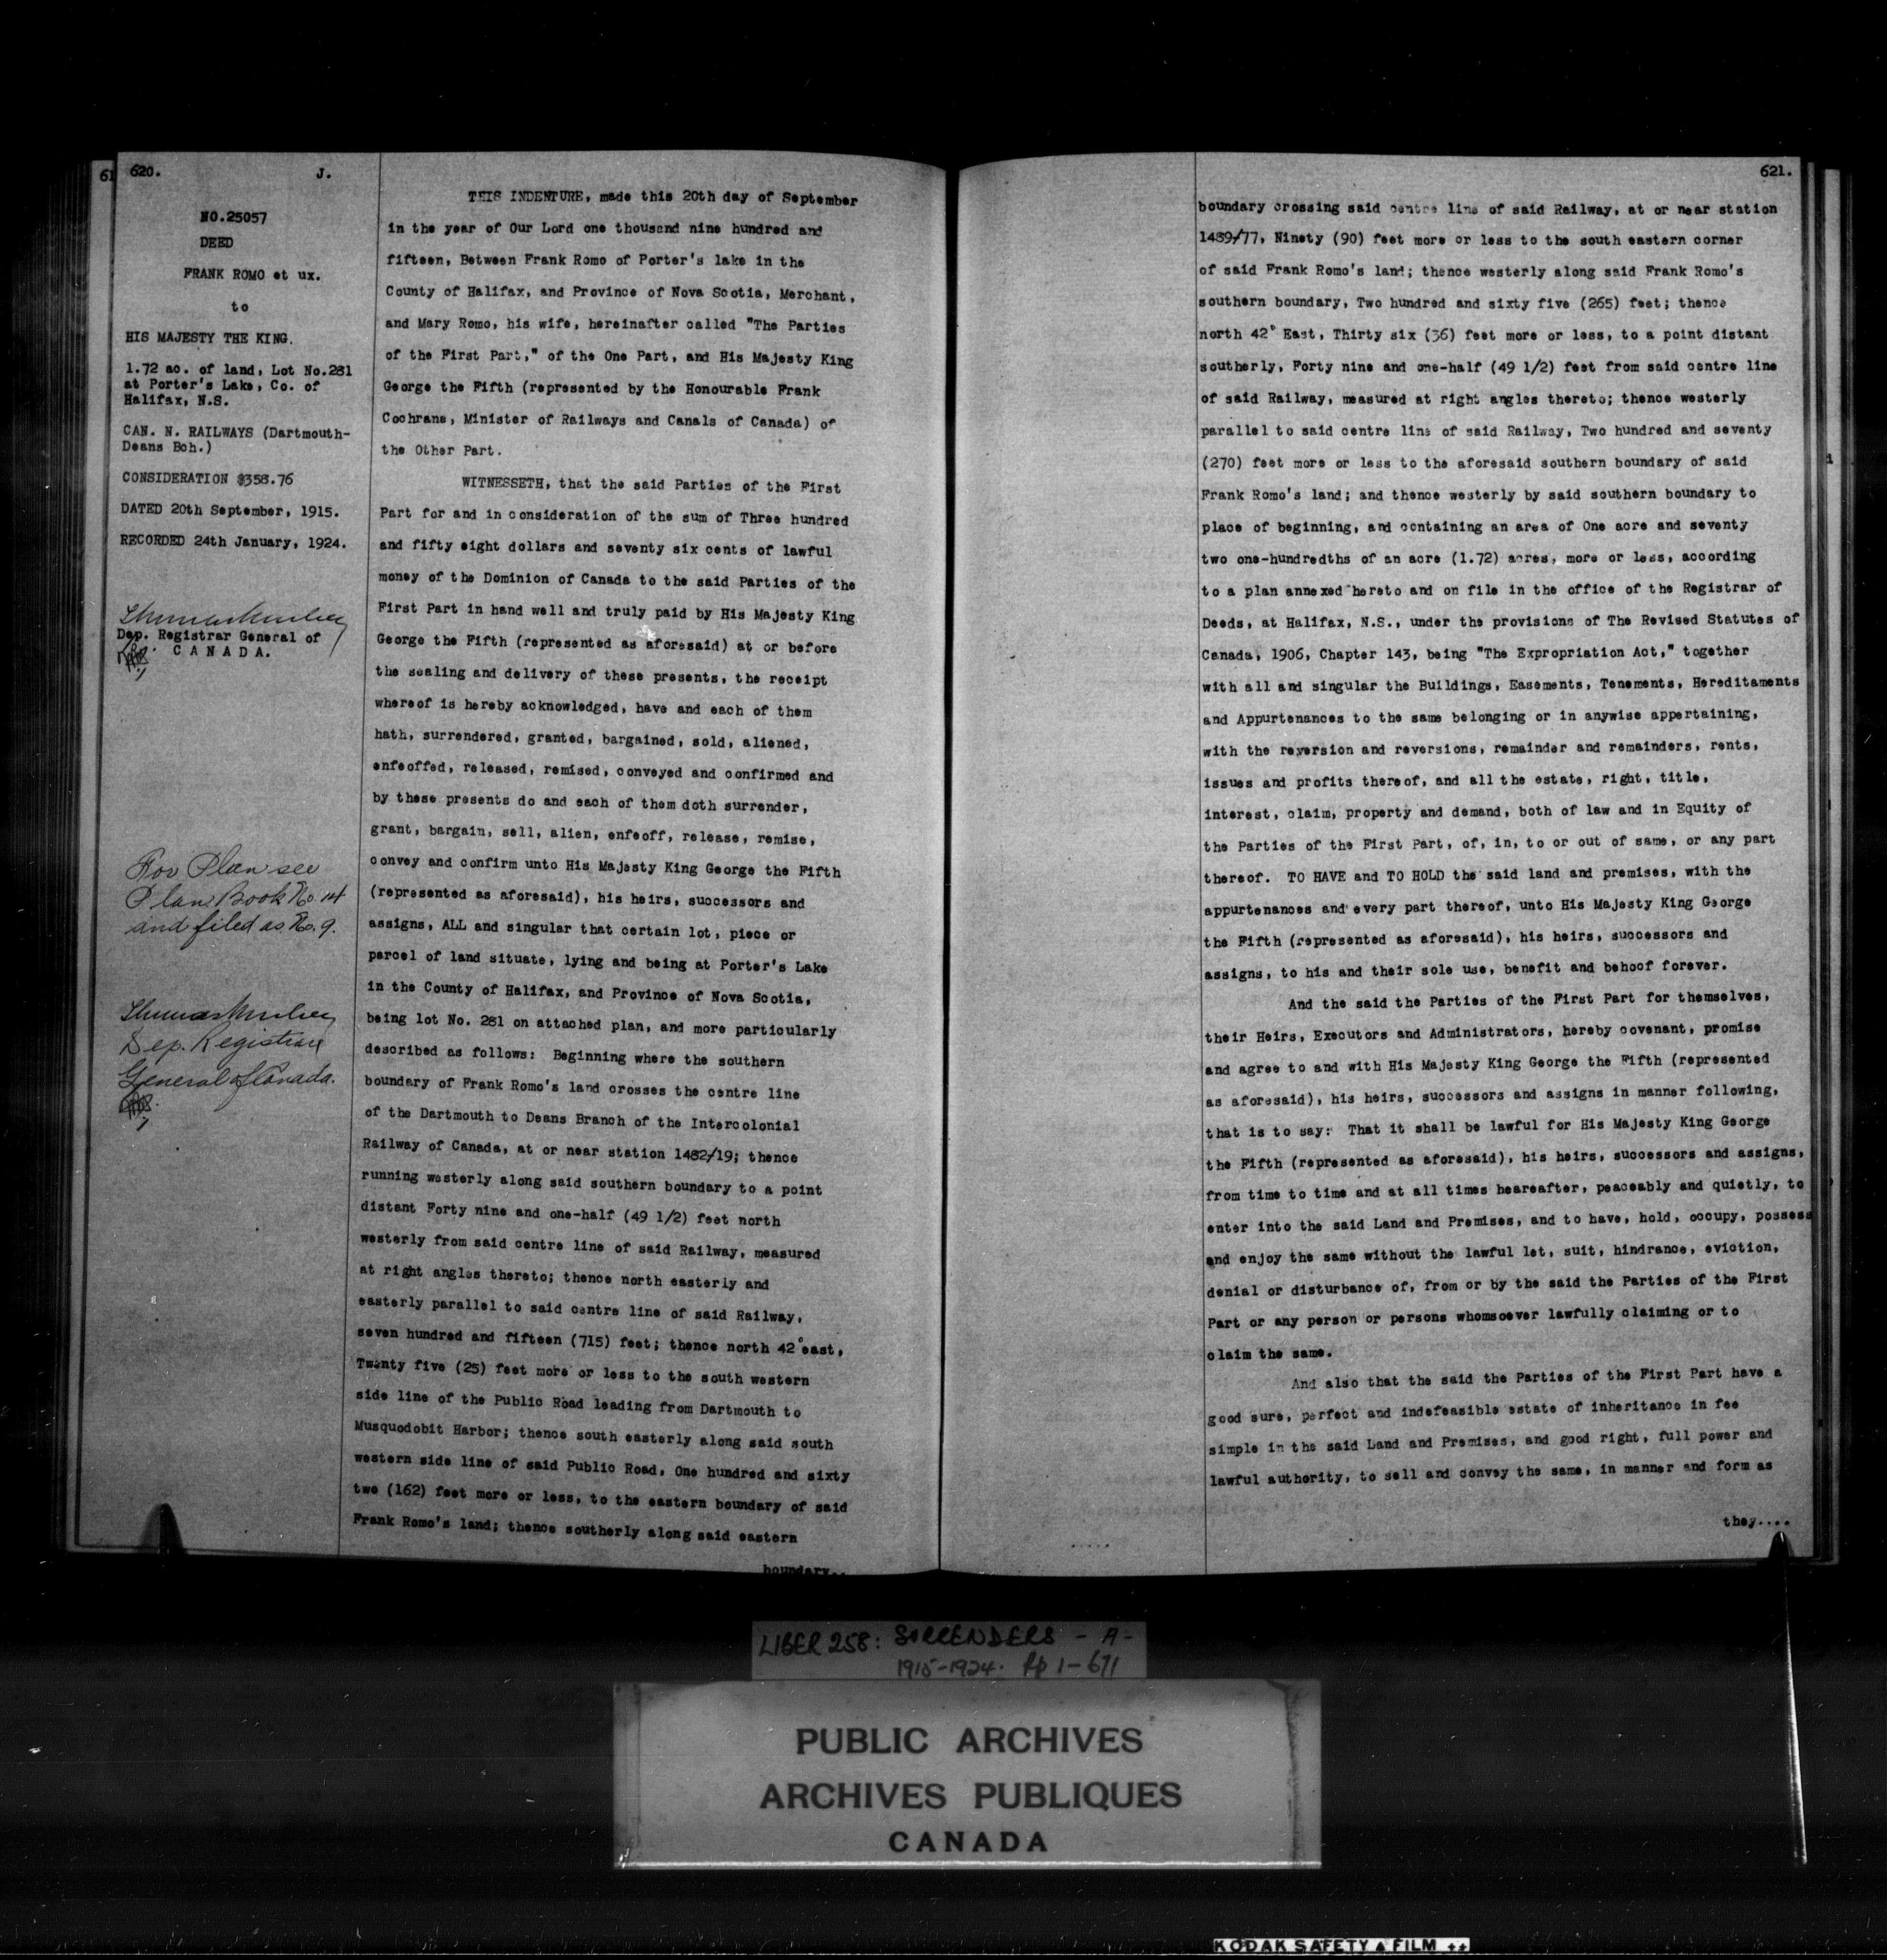 61 620. J.
NO.25057
DEED
FRANK ROMO et ux.
to
HIS MAJESTY THE KING.
1.72 ac. of land, Lot No.281
at Porter's Lake, Co. of
Halifax, N.S.
CAN. N. RAILWAYS (Dartmouth-
Deans Bch.)
CONSIDERATION $358.76
DATED 20th September, 1915.
RECORDED 24th January, 1924.
Thomas Mulvey
Dep. Registrar General of
CANADA.
For Plan see
Plans Book No. 14
and filed as No. 9.
Thomas Mulvey
Dep. Registrar
General of Canada.
THIS INDENTURE, made this 20th day of September
in the year of Our Lord one thousand nine hundred and
fifteen, Between Frank Romo of Porter's lake in the
County of Halifax, and Province of Nova Scotia, Merchant,
and Mary Romo, his wife, hereinafter called "The Parties
of the First Part," of the One Part, and His Majesty King
George the Fifth (represented by the Honourable Frank
Cochrane, Minister of Railways and Canals of Canada) of
the Other Part.
WITNESSETH, that the said Parties of the First
Part for and in consideration of the sum of Three hundred
and fifty eight dollars and seventy six cents of lawful
money of the Dominion of Canada to the said Parties of the
First Part in hand well and truly paid by His Majesty King
George the Fifth (represented as aforesaid) at or before
the sealing and delivery of these presents, the receipt
whereof is hereby acknowledged, have and each of them
hath, surrendered, granted, bargained, sold, aliened,
enfeoffed, released, remised, conveyed and confirmed and
by these presents do and each of them doth surrender,
grant, bargain, sell, alien, enfeoff, release, remise,
convey and confirm unto His Majesty King George the Fifth
(represented as aforesaid), his heirs, successors and
assigns, ALL and singular that certain lot, piece or
parcel of land situate, lying and being at Porter's Lake
in the County of Halifax, and Province of Nova Scotia,
being lot No. 281 on attached plan, and more particularly
described as follows: Beginning where the southern
boundary of Frank Romo's land crosses the centre line
of the Dartmouth to Deans Branch of the Intercolonial
Railway of Canada, at or near station 1482/19; thence
running westerly along said southern boundary to a point
distant Forty nine and one-half (49 1/2) feet north
westerly from said centre line of said Railway, measured
at right angles thereto; thence north easterly and
easterly parallel to said centre line of said Railway,
seven hundred and fifteen (715) feet; thence north 42° east,
Twenty five (25) feet more or less to the south western
side line of the Public Road leading from Dartmouth to
Musquodobit Harbor; thence south easterly along said south
western side line of said Public Road, One hundred and sixty
two (162) feet more or less, to the eastern boundary of said
Frank Romo's land; thence southerly along said eastern
boundary..
621.
boundary crossing said centre line of said Railway, at or near station
1489/77, Ninety (90) feet more or less to the south eastern corner
of said Frank Romo's land; thence westerly along said Frank Romo's
southern boundary, Two hundred and sixty five (265) feet; thence
north 42° East, Thirty six (36) feet more or less, to a point distant
southerly, Forty nine and one-half (49 1/2) feet from said centre line
of said Railway, measured at right angles thereto; thence westerly
parallel to said centre line of said Railway, Two hundred and seventy
(270) feet more or less to the aforesaid southern boundary of said
Frank Romo's land; and thence westerly by said southern boundary to
place of beginning, and containing an area of One acre and seventy
two one-hundredths of an acre (1.72) acres, more or less, according
to a plan annexed hereto and on file in the office of the Registrar of
Deeds, at Halifax, N.S., under the provisions of The Revised Statutes of
Canada, 1906, Chapter 143, being "The Expropriation Act," together
with all and singular the Buildings, Easements, Tenements, Hereditaments
and Appurtenances to the same belonging or in anywise appertaining,
with the reversion and reversions, remainder and remainders, rents,
issues and profits thereof, and all the estate, right, title,
interest, claim, property and demand, both of law and in Equity of
the Parties of the First Part, of, in, to or out of same, or any part
thereof. TO HAVE and TO HOLD the said land and premises, with the
appurtenances and every part thereof, unto His Majesty King George
the Fifth (represented as aforesaid), his heirs, successors and
assigns, to his and their sole use, benefit and behoof forever.
And the said the Parties of the First Part for themselves,
their Heirs, Executors and Administrators, hereby covenant, promise
and agree to and with His Majesty King George the Fifth (represented
as aforesaid), his heirs, successors and assigns in manner following,
that is to say: That it shall be lawful for His Majesty King George
the Fifth (represented as aforesaid), his heirs, successors and assigns,
from time to time and at all times heareafter, peaceably and quietly, to
enter into the said Land and Premises, and to have, hold, occupy, possess
and enjoy the same without the lawful let, suit, hindrance, eviction,
denial or disturbance of, from or by the said the Parties of the First
Part or any person or persons whomsoever lawfully claiming or to
claim the same.
And also that the said the Parties of the First Part have a
good sure, perfect and indefeasible estate of inheritance in fee
simple in the said Land and Premises, and good right, full power and
lawful authority, to sell and convey the same, in manner and form as
they....
LIBER 258: SURRENDERS - A -
1915-1924. pp 1-671
PUBLIC ARCHIVES
ARCHIVES PUBLIQUES
CANADA
KODAK SAFETY FILM